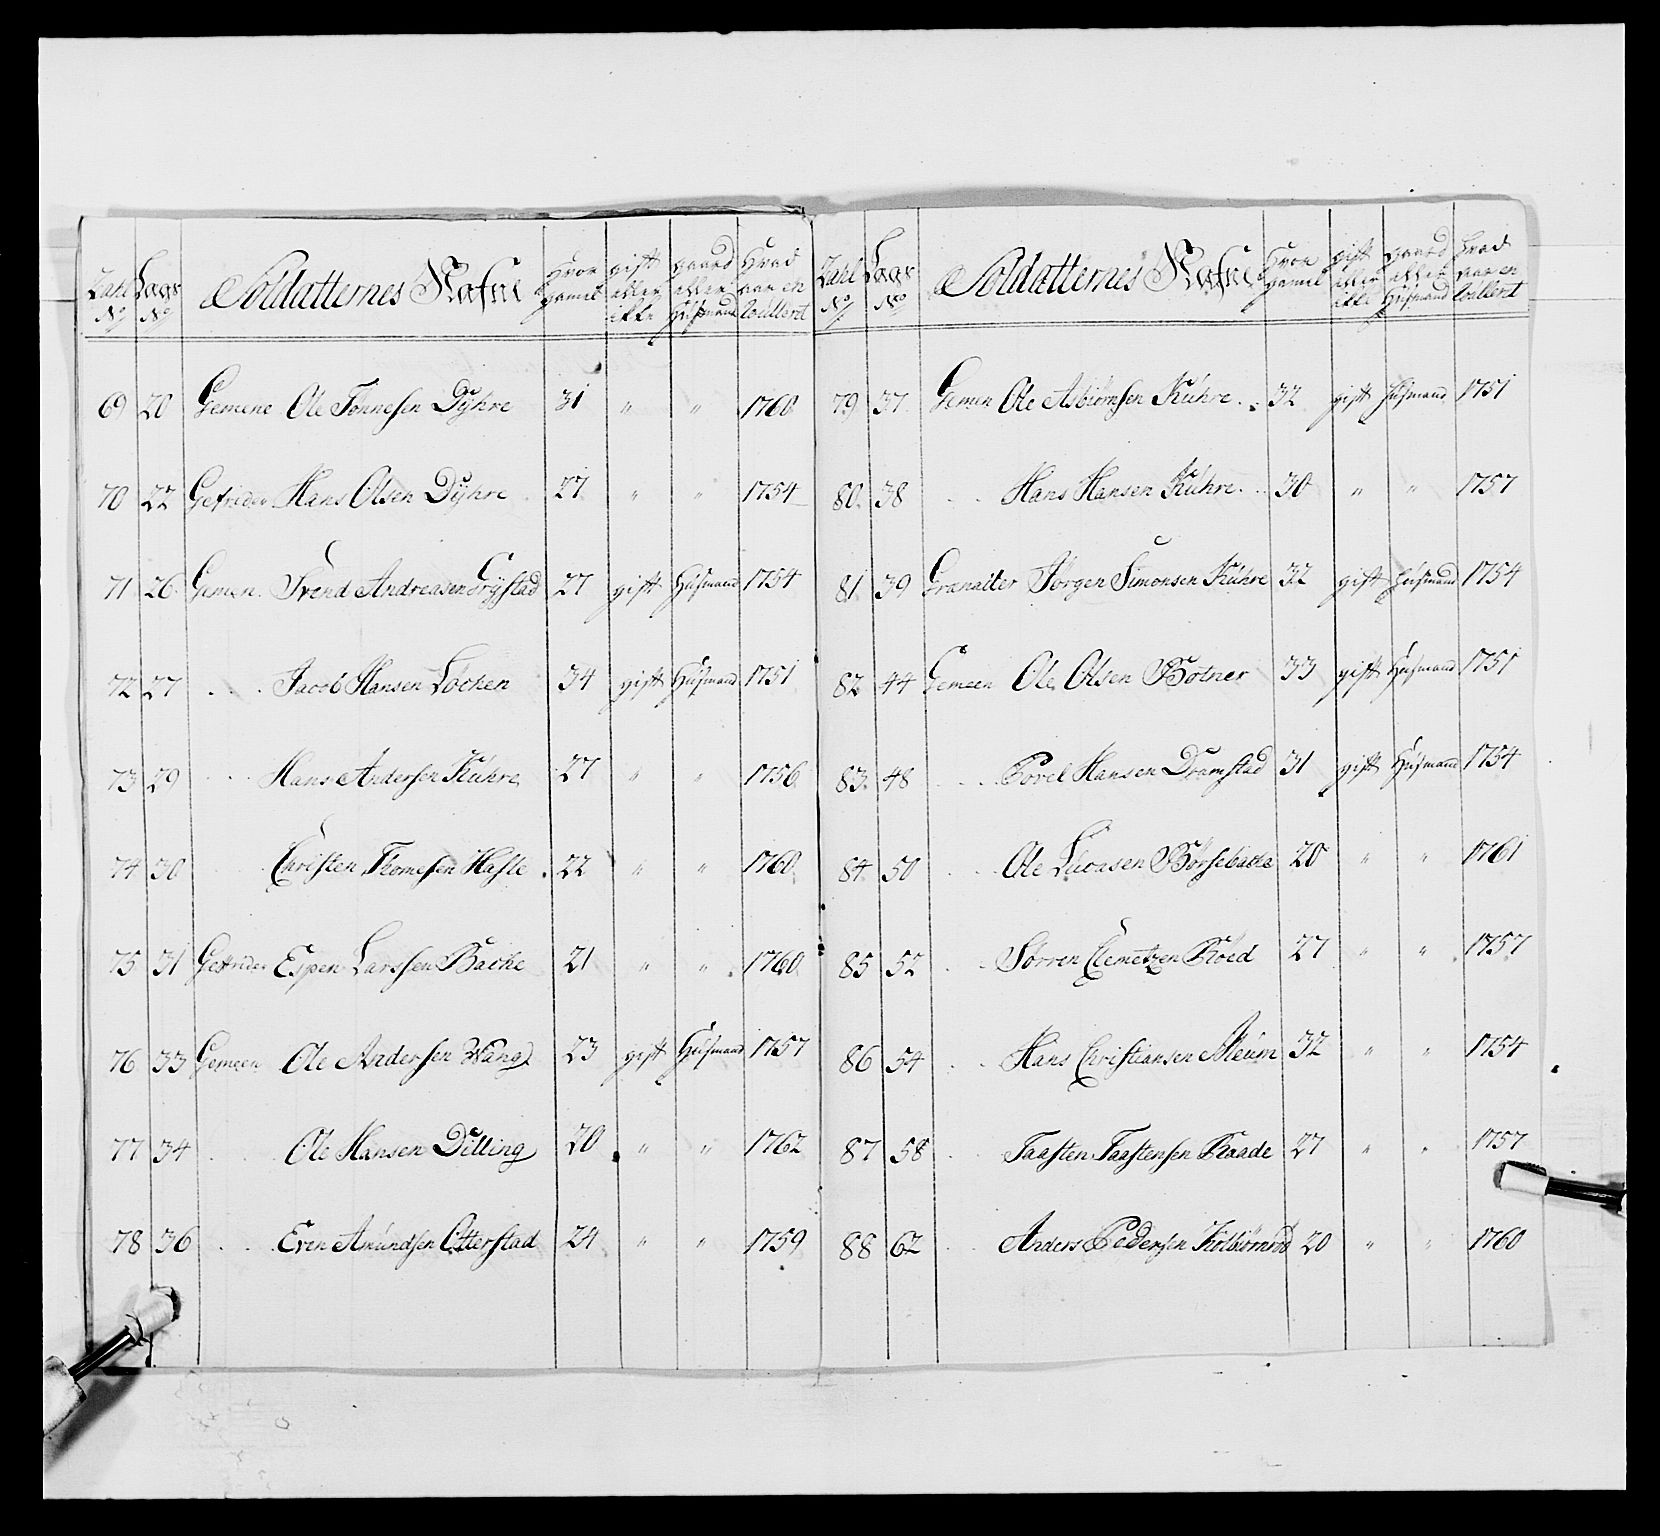 Tahl No Lags No Soldatternes Nafne Hvor gamel gift eller ikke gaard eller Husmand Hvad aar en Roullert
69 20 Gemene Ole Tønnesen Dÿhre 31 " " 1760
70 22 Gefrider Hans Olsen Dÿhre 27 " " 1754
71 26 Gemen Svend Andreasen Grÿstad 27 gift Husmand 1754
72 27 . . . Jacob Hansen Løcken 34 gift Husmand 1751
73 29 . . . Hans Andersen Kuhre 27 " " 1756
74 30 . . . Christen Thomesen Hasle 22 " " 1760
75 31 Gefrider Espen Larssen Backe 21 " " 1760
76 33 Gemeen Ole Andersen Wang 23 gift Husmand 1757
77 34 . . . Ole Hansen Dilling 20 " " 1762
78 36 . . . Even Amundsen Otterstad 24 " " 1759
Tahl No Lags No Soldatternes Nafne Hvor gamel gift eller ikke gaard eller Husmand Hvad aar en Roullert
79 37 Gemen Ole Asbiørnsen Kuhre 32 gift Husmand 1751
80 38 . . Hans Hansen Kuhre 30 " " 1757
81 39 Granatter Jørgen Simonsen Kuhre 32 gift Husmand 1754
82 44 Gemeen Ole Olsen Botner 33 gift Husmand 1751
83 48 . . . Povel Hansen Dramstad 31 gift Husmand 1754
84 50 . . . Ole Lucasen Børsebacke 20 " " 1761
85 52 . . Sørren Clemetzen Röed 27 " " 1757
86 54 . . Hans Christiansen Meum 32 " " 1754
87 58 . . Taasten Taastensen Raade 27 " " 1757
88 62 . . Anders Pedersen Kolbiørnröd 20 " " 1760